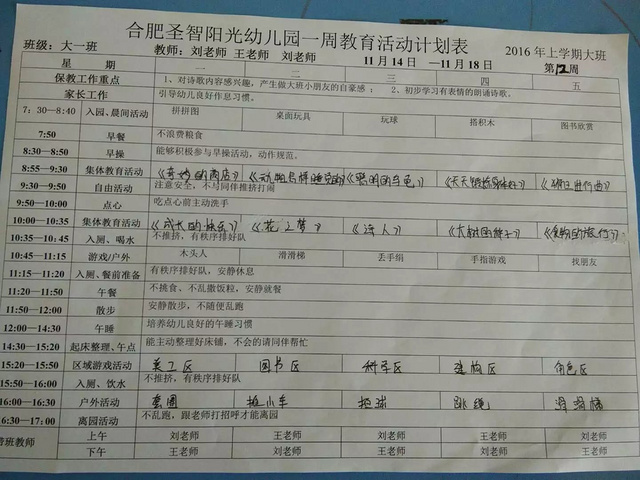 合肥圣智阳光幼儿园一周教育活动计划表
班级：大一班 教师：刘老师 王老师 刘老师 2016年上学期大班
11月14日 —11月18日 第12周
星 期 一 二 三 四 五
保教工作重点 1、对诗歌内容感兴趣，产生做大班小朋友的自豪感； 2、初步学习有表情的朗诵诗歌。
家长工作 引导幼儿良好作息习惯。
7：30—8:40 入园、晨间活动 拼拼图 桌面玩具 玩球 搭积木 图书欣赏
7:50 早餐 不浪费粮食
8:30—8:50 早操 能够积极参与早操活动，动作规范。
8:55—9:30 集体教育活动 《奇妙的商店》 《动物怎样睡觉的》 《聪明的乌龟》 《天天锻炼身体好》
9:30—9:50 自由活动 注意安全，不与同伴推挤打闹
9:50—10:00 点心 吃点心前主动洗手
10:00—10:35 集体教育活动 《成长的快乐》 《花之梦》
10:35—10:45 入厕、喝水 不推挤，有秩序排好队
10:45—11:15 游戏/户外 木头人 滑滑梯 丢手绢 手指游戏 找朋友
11:15—11:20 入厕、餐前准备 有秩序排好队，安静休息
11:20—11:50 午餐 不挑食、不乱撒饭粒，安静就餐
11:50—12:00 散步 安静散步，不随便乱跑
12:00—14:30 午睡 培养幼儿良好的午睡习惯
14:30—15:20 起床整理、午点 能主动整理好床铺，不会的请同伴帮忙
15:20—15:50 区域游戏活动 美工区 图书区 科学区 建构区 角色区
15:50—16:00 入厕、饮水 不推挤，有秩序排好队
16:00—16:30 户外活动 套圈 推小车 拍球 跳绳 滑滑梯
16:30—17:00 离园活动 不乱跑，跟老师打招呼才能离园
带班教师 上午 刘老师 王老师 刘老师 王老师 刘老师
下午 王老师 刘老师 王老师 刘老师 王老师